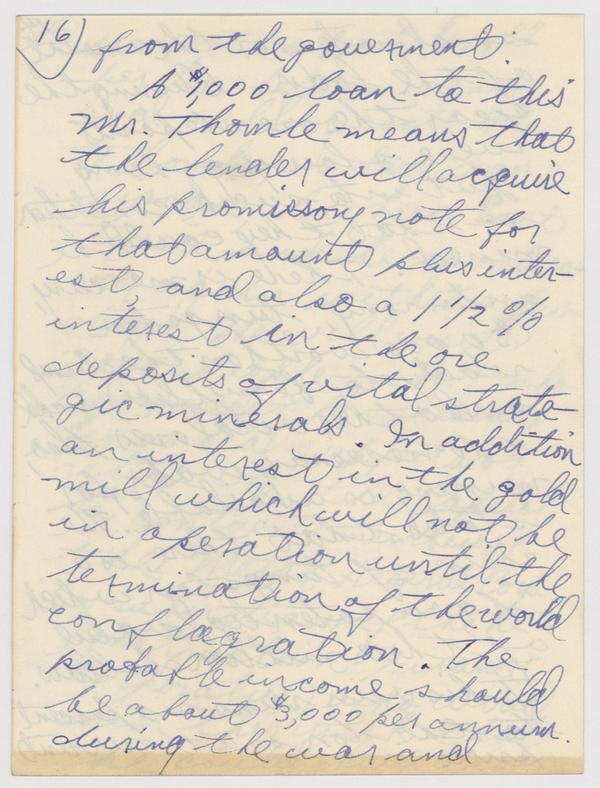 16) from the government.
A $1,000 loan to this
Mr. Thomle means that
the lender will acquire
his promissory note for
that amount plus inter-
est, and also a 1 1/2 %
interest in the ore
deposits of vital strate-
gic minerals. In addition
an interest in the gold
mill which will not be
in operation until the
termination of the world
conflagration. The
probable income should
be about $3,000 per annum.
during the war and